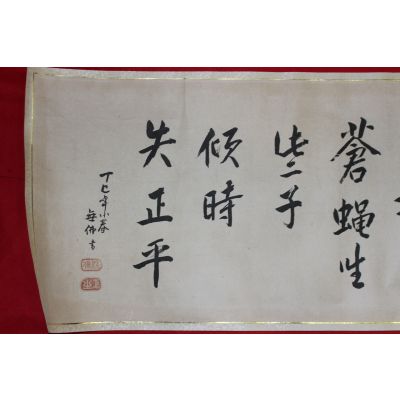 蒼蝿生
此二子
傾時
失正平
丁巳年小春
無佛書